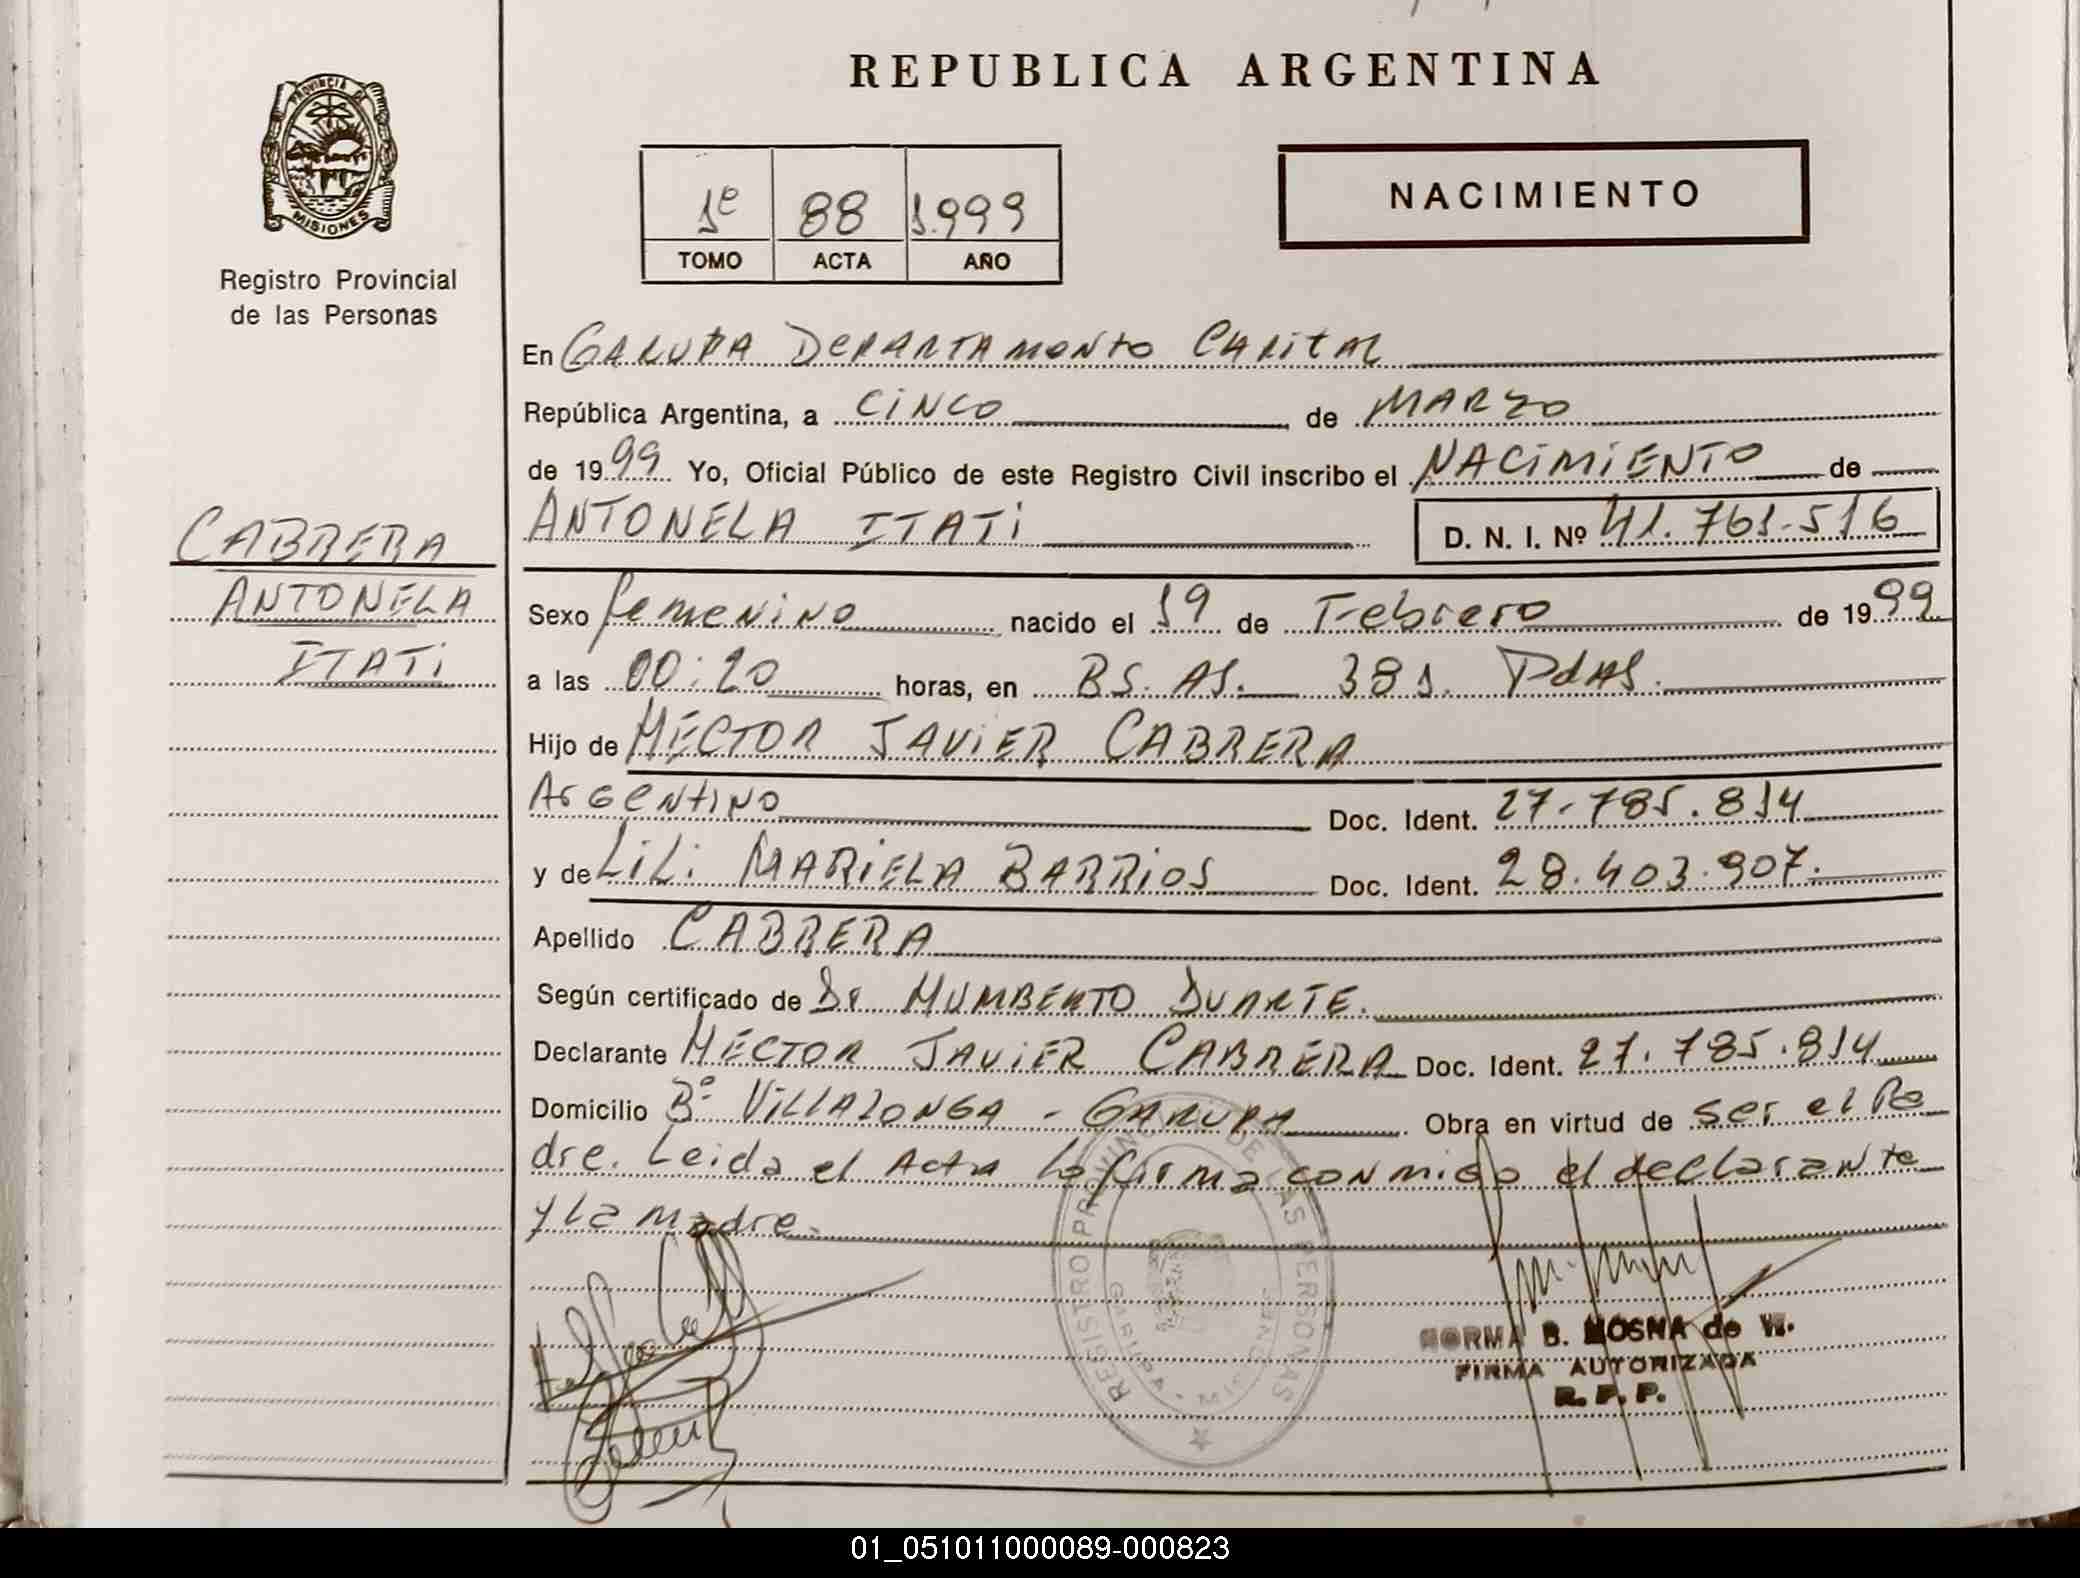 REPUBLICA ARGENTINA
PROVINCIA DE
MISIONES
Registro Provincial
de las Personas
1º 88 1.999
TOMO ACTA AÑO
NACIMIENTO
En GARUPA DEPARTAMENTO CAPITAL
República Argentina, a CINCO de MARZO
de 1999 Yo, Oficial Público de este Registro Civil inscribo el NACIMIENTO de
ANTONELA ITATI D. N. I. Nº 41.761.516
CABRERA
ANTONELA
ITATI
Sexo femenino nacido el 19 de Febrero de 1999
a las 00:20 horas, en BS. AS. 381. PdAS.
Hijo de HECTOR JAVIER CABRERA
Argentino Doc. Ident. 27.785.814
y de LiLi MARIELA BARRIOS Doc. Ident. 28.403.907.
Apellido CABRERA
Según certificado de Dr HUMBERTO DUARTE.
Declarante HECTOR JAVIER CABRERA Doc. Ident. 27.785.814
Domicilio Bº VILLALONGA - GARUPA Obra en virtud de ser el Pa
dre. Leida el Acta la firma conmigo el declarante
y la madre.
REGISTRO PROVINCIAL DE LAS PERSONAS
GARUPA
MISIONES
NORMA B. MOSNA de W.
FIRMA AUTORIZADA
R. P. P.
01_051011000089-000823